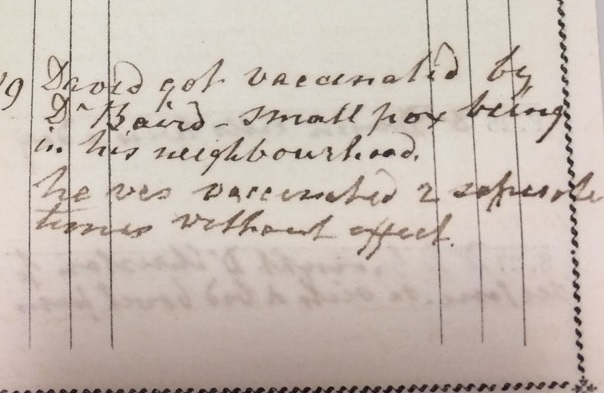 19 David got vaccinated by
Dr Baird - small pox being
in his neighbourhood.
he was vaccinated 2 seperate
times without effect.